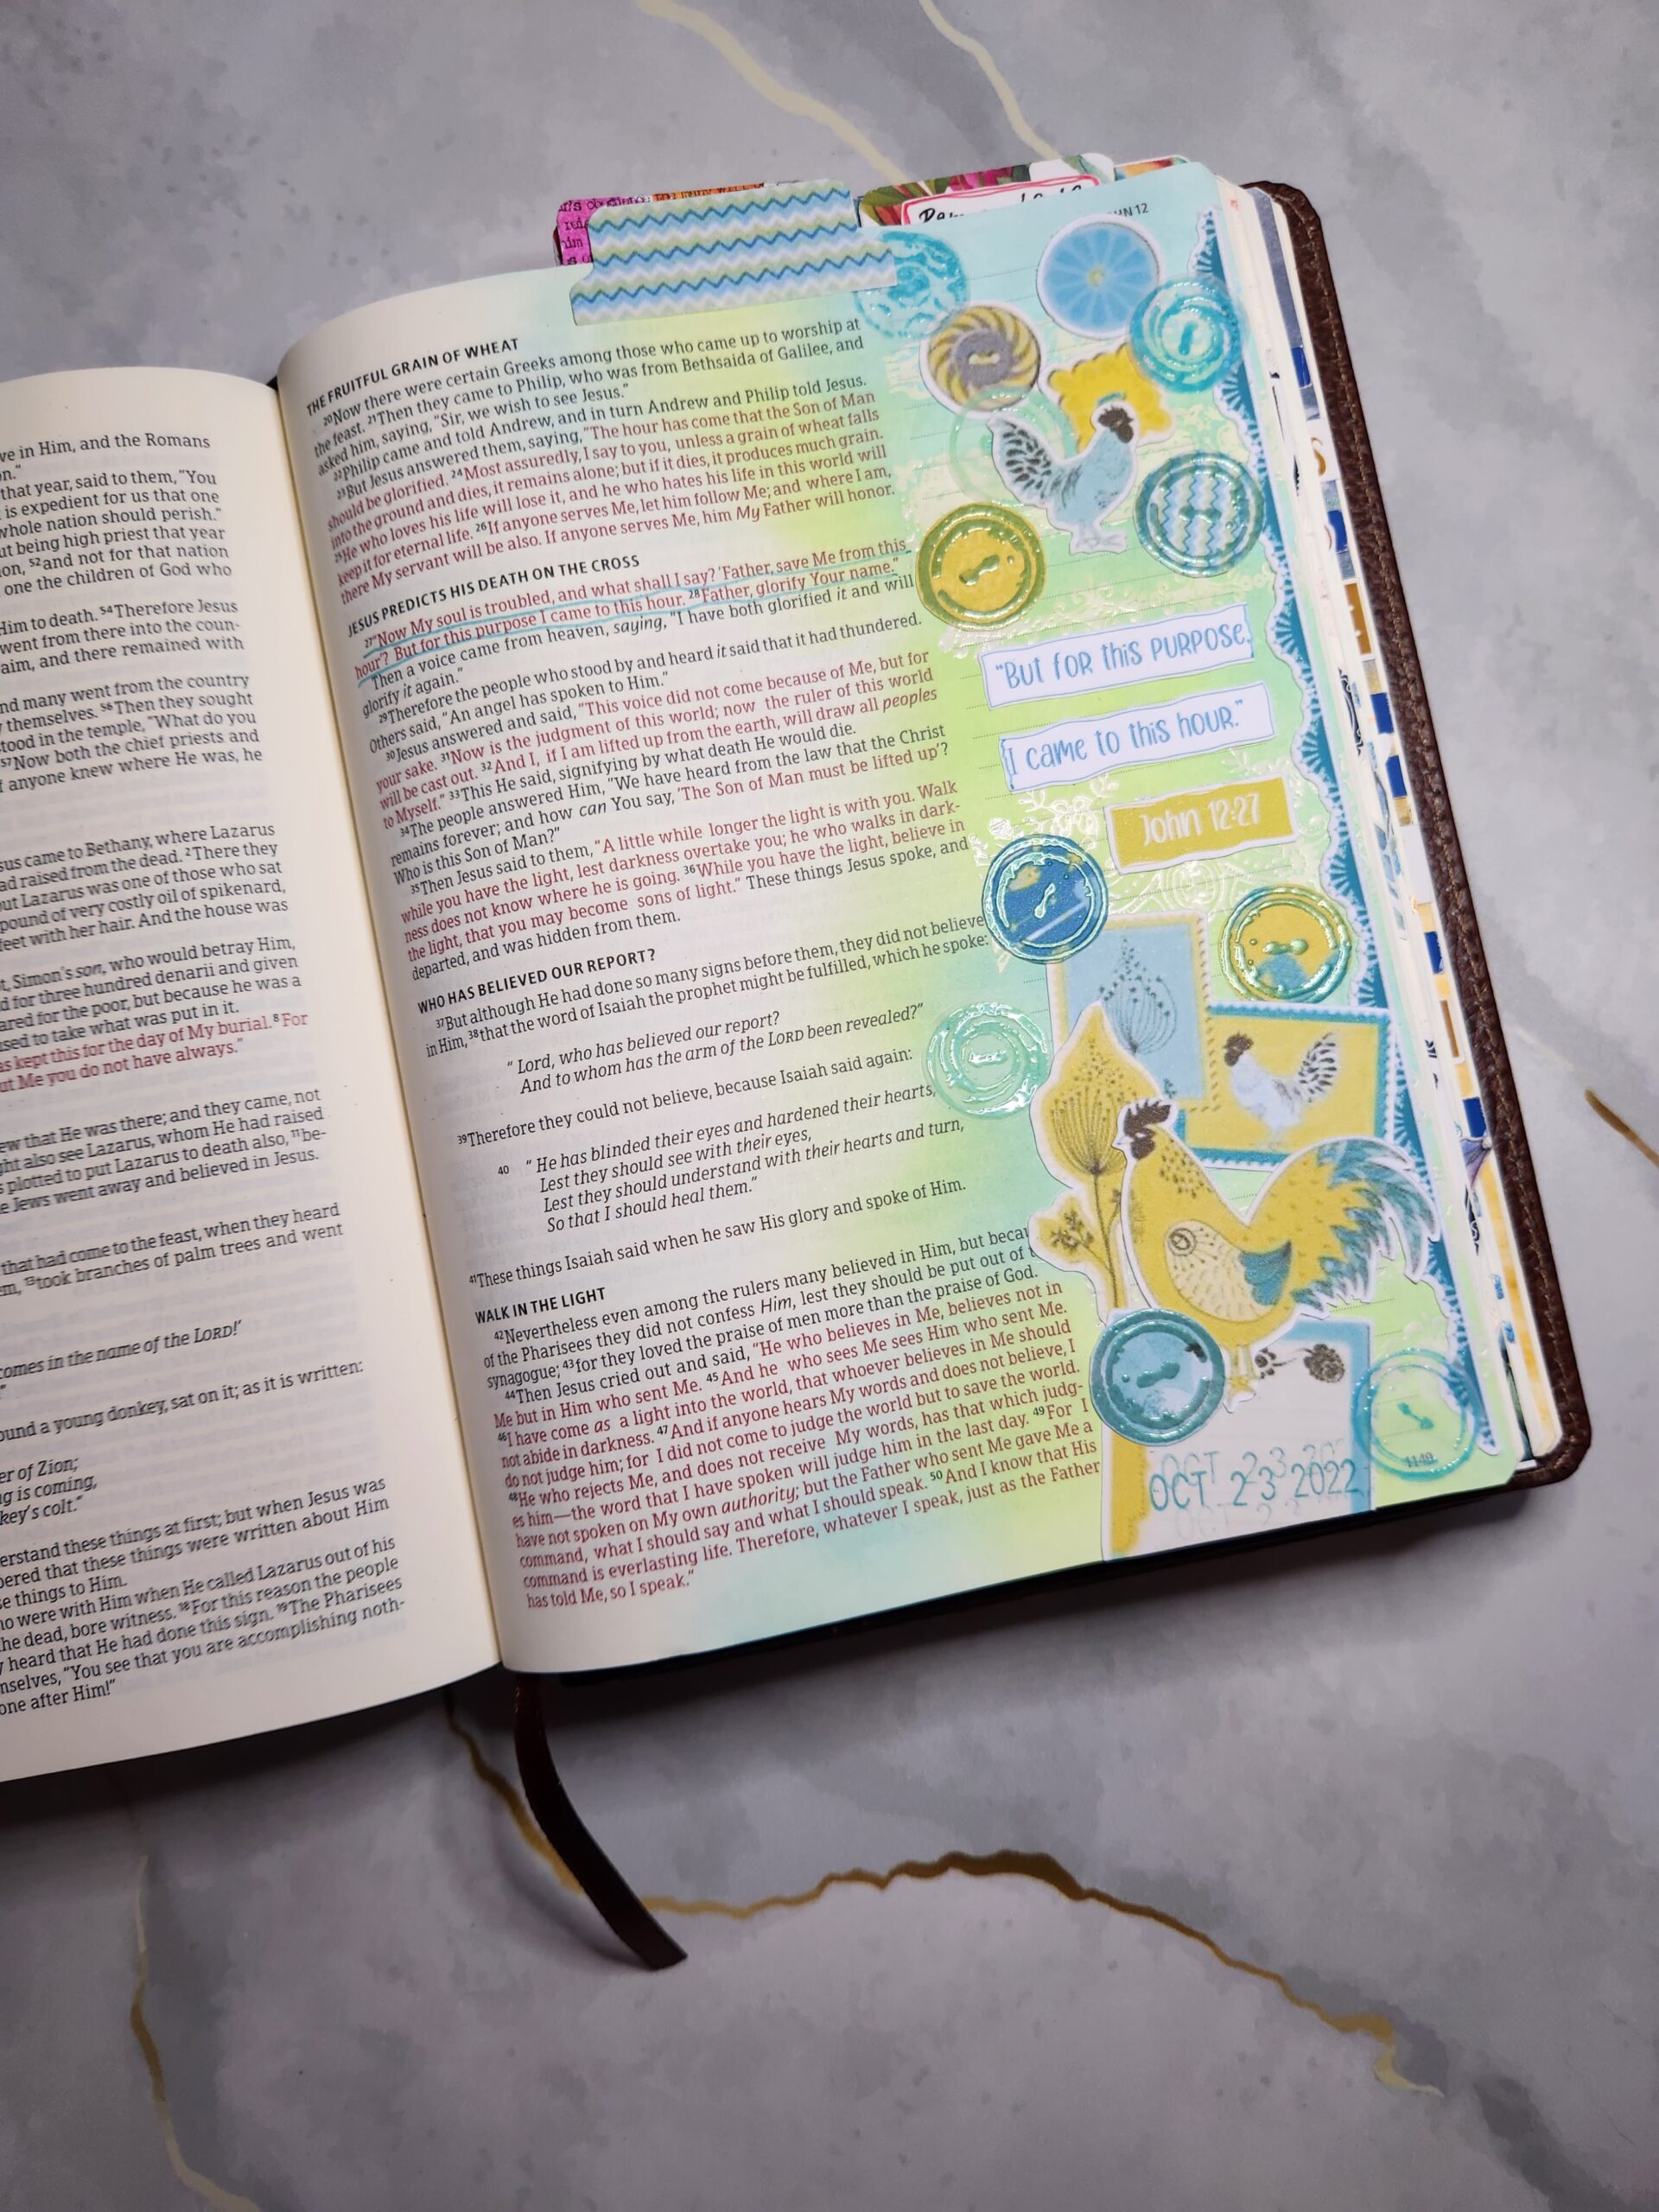 ve in Him, and the Romans
on."
that year, said to them, "You
is expedient for us that one
whole nation should perish."
ut being high priest that year
ion, 52and not for that nation
one the children of God who
Him to death. 54Therefore Jesus
went from there into the coun-
aim, and there remained with
nd many went from the country
themselves. 56Then they sought
tood in the temple, "What do you
57Now both the chief priests and
f anyone knew where He was, he
sus came to Bethany, where Lazarus
ad raised from the dead. 2There they
ut Lazarus was one of those who sat
pound of very costly oil of spikenard,
feet with her hair. And the house was
t, Simon's son, who would betray Him,
d for three hundred denarii and given
ared for the poor, but because he was a
used to take what was put in it.
as kept this for the day of My burial. 8For
ut Me you do not have always."
ew that He was there; and they came, not
ght also see Lazarus, whom He had raised
s plotted to put Lazarus to death also, 11be-
e Jews went away and believed in Jesus.
that had come to the feast, when they heard
em, 13took branches of palm trees and went
comes in the name of the LORD!'
ound a young donkey, sat on it; as it is written:
er of Zion;
g is coming,
key's colt."
erstand these things at first; but when Jesus was
bered that these things were written about Him
se things to Him.
ho were with Him when He called Lazarus out of his
he dead, bore witness. 18For this reason the people
y heard that He had done this sign. 19The Pharisees
mselves, "You see that you are accomplishing noth-
one after Him!"
HN 12
THE FRUITFUL GRAIN OF WHEAT
20Now there were certain Greeks among those who came up to worship at
the feast. 21Then they came to Philip, who was from Bethsaida of Galilee, and
asked him, saying, "Sir, we wish to see Jesus."
22Philip came and told Andrew, and in turn Andrew and Philip told Jesus.
23But Jesus answered them, saying, "The hour has come that the Son of Man
should be glorified. 24Most assuredly, I say to you, unless a grain of wheat falls
into the ground and dies, it remains alone; but if it dies, it produces much grain.
25He who loves his life will lose it, and he who hates his life in this world will
keep it for eternal life. 26If anyone serves Me, let him follow Me; and where I am,
there My servant will be also. If anyone serves Me, him My Father will honor.
JESUS PREDICTS HIS DEATH ON THE CROSS
27"Now My soul is troubled, and what shall I say? 'Father, save Me from this
hour'? But for this purpose I came to this hour. 28Father, glorify Your name."
Then a voice came from heaven, saying, "I have both glorified it and will
glorify it again."
29Therefore the people who stood by and heard it said that it had thundered.
Others said, "An angel has spoken to Him."
30Jesus answered and said, "This voice did not come because of Me, but for
your sake. 31Now is the judgment of this world; now the ruler of this world
will be cast out. 32And I, if I am lifted up from the earth, will draw all peoples
to Myself." 33This He said, signifying by what death He would die.
34The people answered Him, "We have heard from the law that the Christ
remains forever; and how can You say, 'The Son of Man must be lifted up'?
Who is this Son of Man?"
35Then Jesus said to them, "A little while longer the light is with you. Walk
while you have the light, lest darkness overtake you; he who walks in dark-
ness does not know where he is going. 36While you have the light, believe in
the light, that you may become sons of light." These things Jesus spoke, and
departed, and was hidden from them.
WHO HAS BELIEVED OUR REPORT?
37But although He had done so many signs before them, they did not believe
in Him, 38that the word of Isaiah the prophet might be fulfilled, which he spoke:
"Lord, who has believed our report?
And to whom has the arm of the LORD been revealed?"
39Therefore they could not believe, because Isaiah said again:
40 "He has blinded their eyes and hardened their hearts,
Lest they should see with their eyes,
Lest they should understand with their hearts and turn,
So that I should heal them."
41These things Isaiah said when he saw His glory and spoke of Him.
WALK IN THE LIGHT
42Nevertheless even among the rulers many believed in Him, but becau
of the Pharisees they did not confess Him, lest they should be put out of t
synagogue; 43for they loved the praise of men more than the praise of God.
44Then Jesus cried out and said, "He who believes in Me, believes not in
Me but in Him who sent Me. 45And he who sees Me sees Him who sent Me.
46I have come as a light into the world, that whoever believes in Me should
not abide in darkness. 47And if anyone hears My words and does not believe, I
do not judge him; for I did not come to judge the world but to save the world.
48He who rejects Me, and does not receive My words, has that which judg-
es him—the word that I have spoken will judge him in the last day. 49For I
have not spoken on My own authority; but the Father who sent Me gave Me a
command, what I should say and what I should speak. 50And I know that His
command is everlasting life. Therefore, whatever I speak, just as the Father
has told Me, so I speak."
"But for this purpose
I came to this hour."
John 12:27
OCT 23 2022
1149